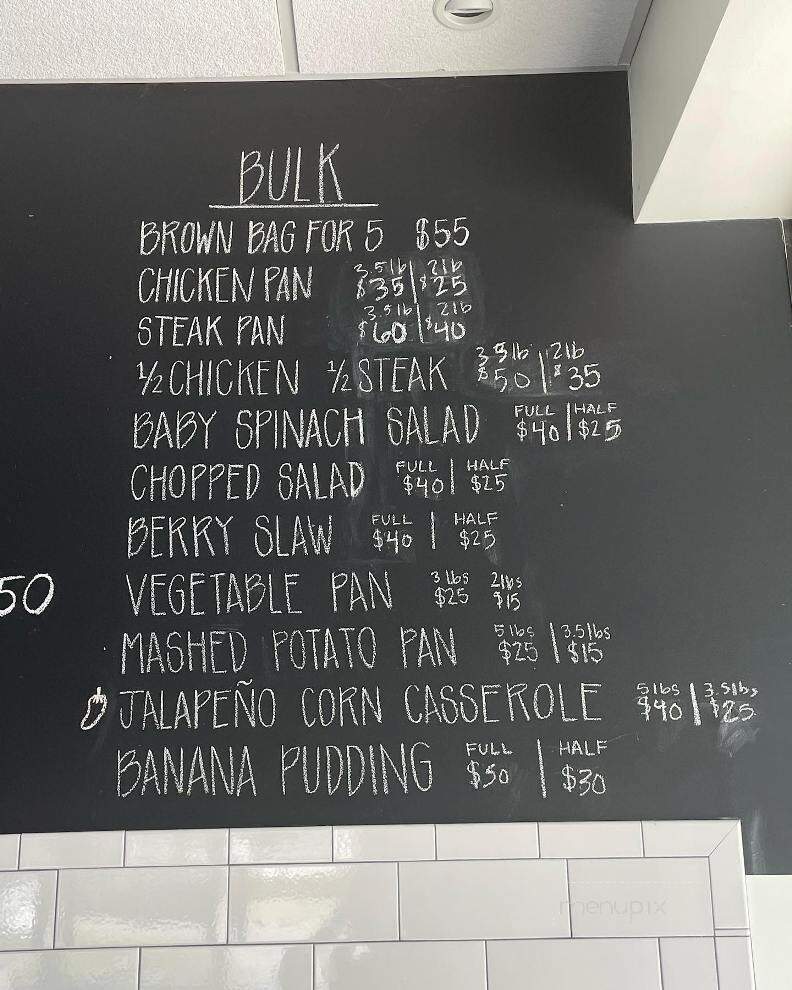 BULK
BROWN BAG FOR 5 $55
CHICKEN PAN 3.5lb $35 | 2lb $25
STEAK PAN 3.5lb $60 | 2lb $40
½ CHICKEN ½ STEAK 3.5lb $50 | 2lb $35
BABY SPINACH SALAD FULL $40 | HALF $25
CHOPPED SALAD FULL $40 | HALF $25
BERRY SLAW FULL $40 | HALF $25
50
VEGETABLE PAN 3lbs $25 2lbs $15
MASHED POTATO PAN 5lbs $25 | 3.5lbs $15
JALAPEÑO CORN CASSEROLE 5lbs $40 | 3.5lbs $25
BANANA PUDDING FULL $50 | HALF $30
menupix